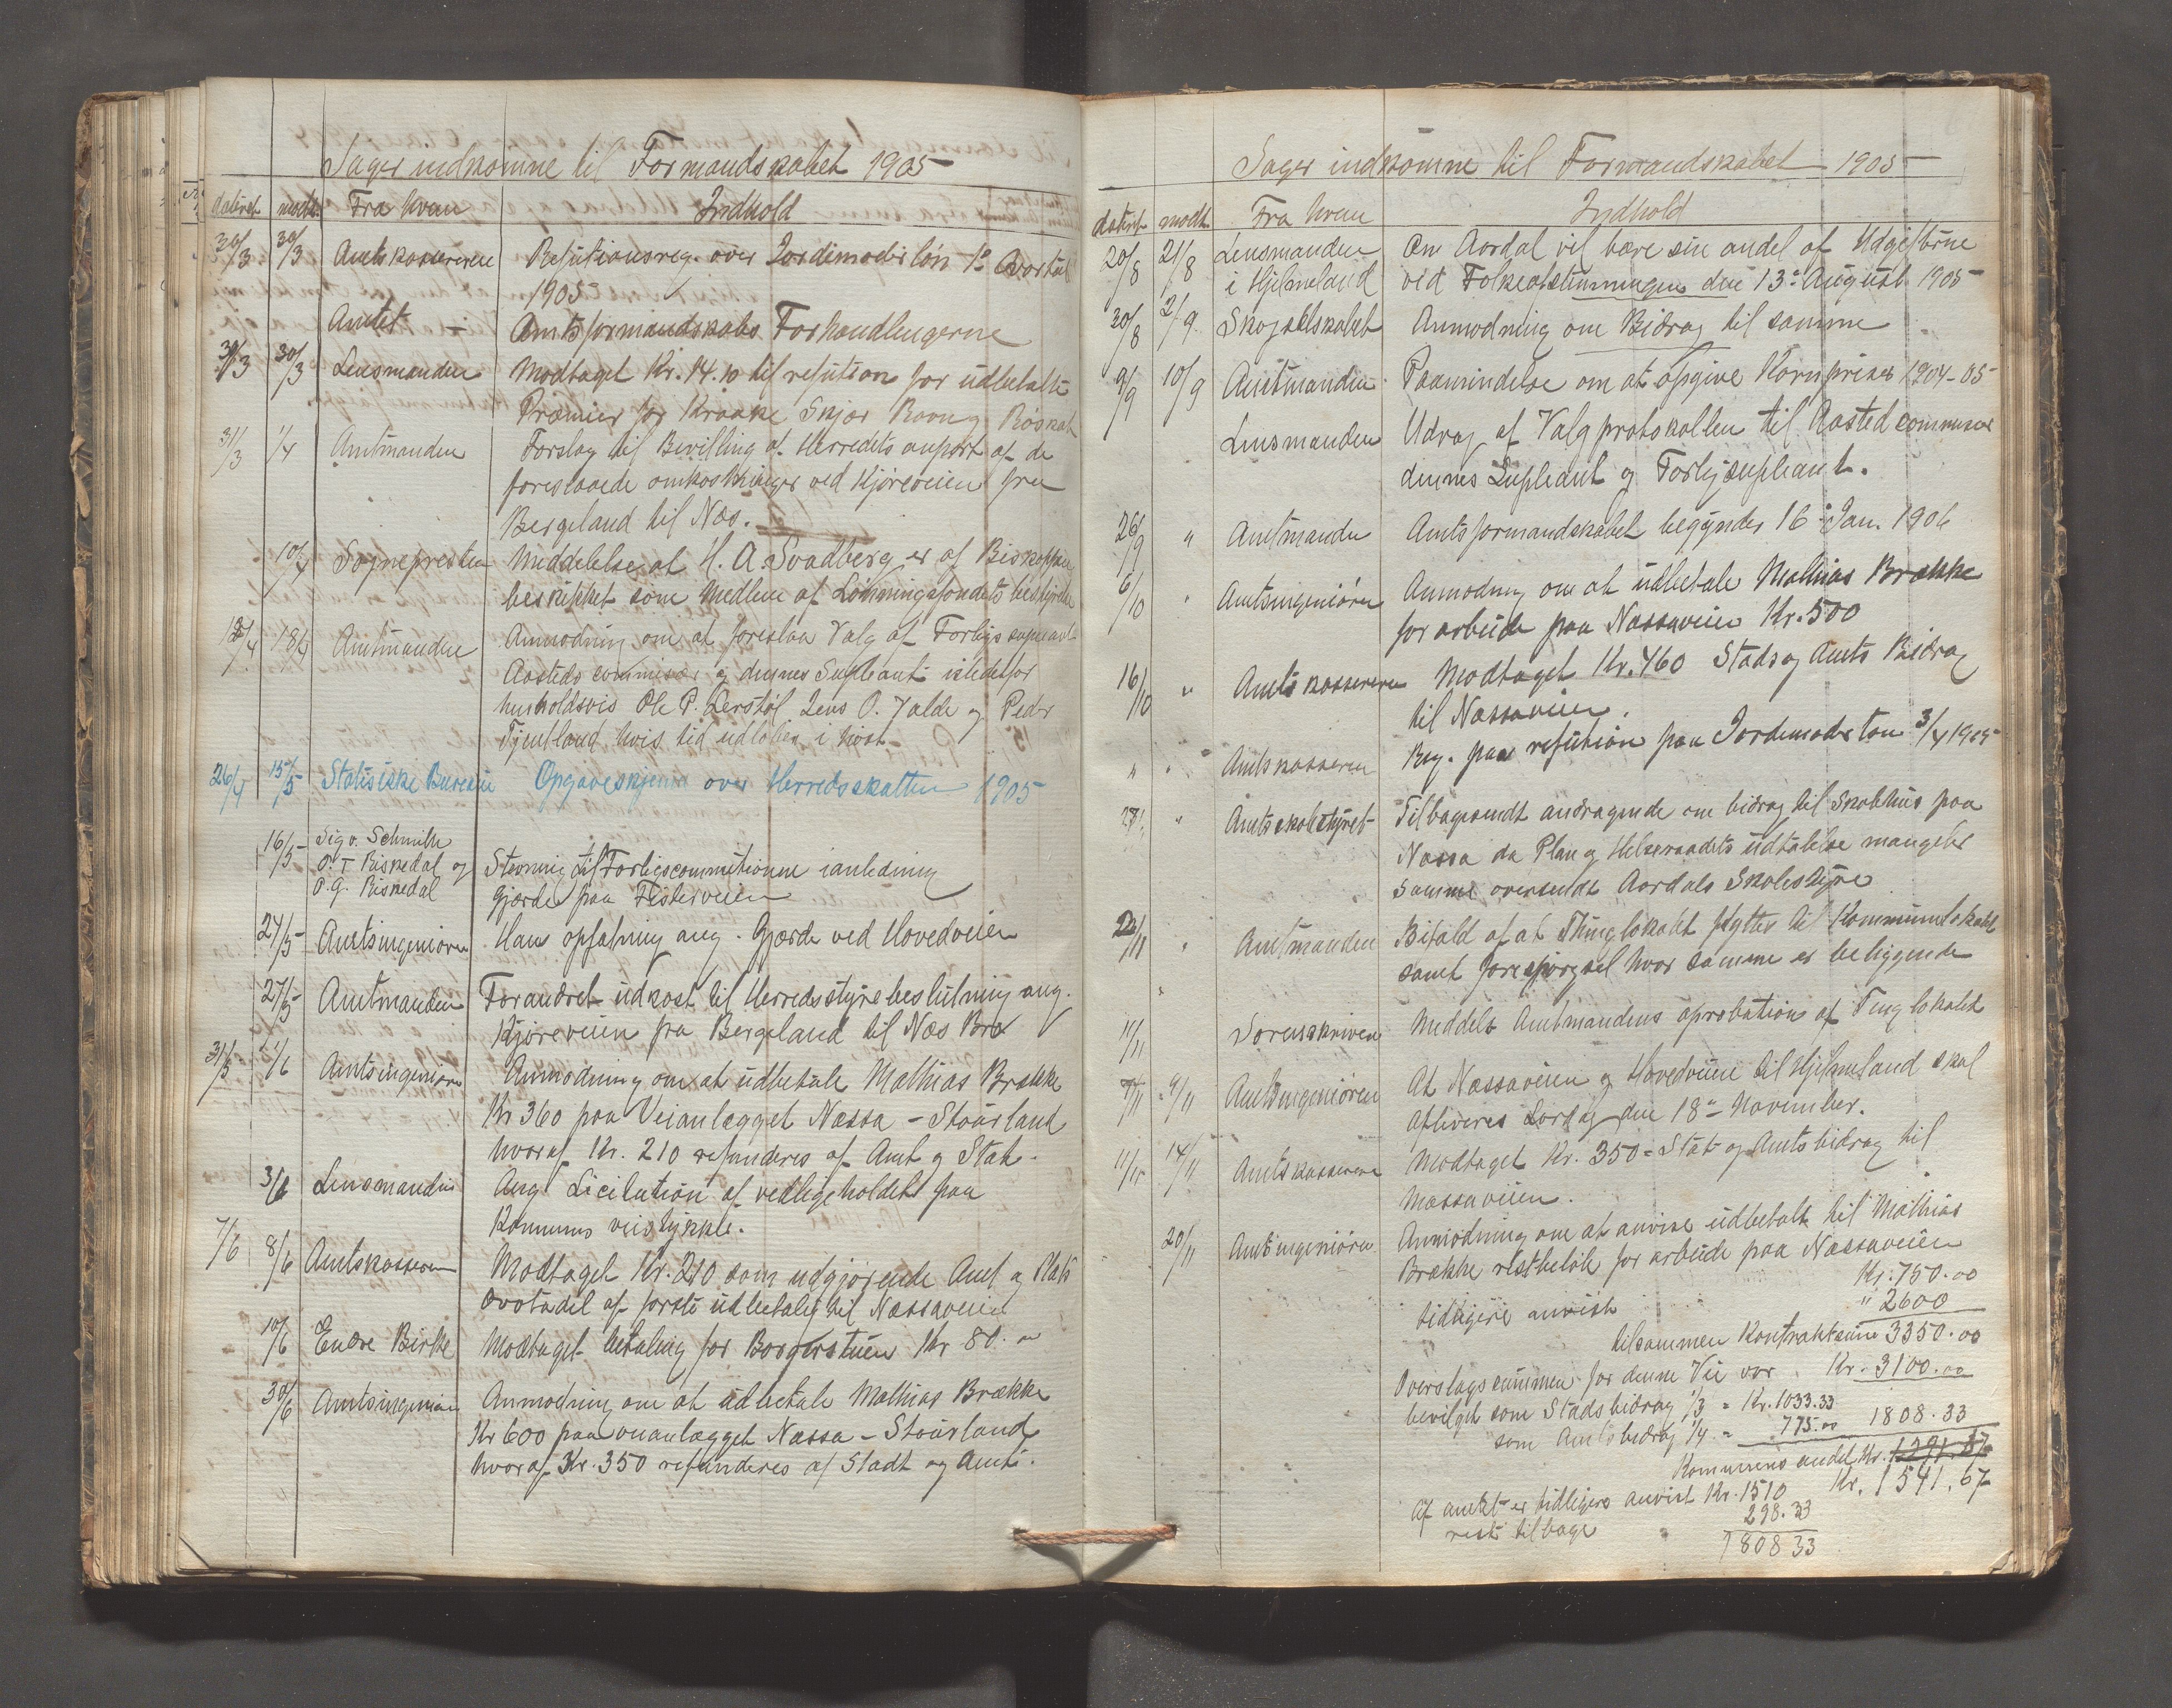 Sager indkomne til Formandskabet 1905
dateret modt. Fra hvem Indhold
30/3 30/3 Amtskassereren Refutionsreg. over Jordemoderløn 1ste Qvartal
1905
Amtet - Amtsformandskabs Forhandlingerne
30/3 30/3 Lensmanden Modtaget Kr. 14.10 til refution for udbetalte
Præmier for Kraake Skjær Ravn og Røskat
31/3 1/4 Amtmanden Forslag til Bevilling af Herredets anport af de
foreslaaede omkostninger ved Kjøreveien fra
Bergeland til Næs.
10/4 Sognepresten Meddelelse at H. A. Svadberg er af Biskoppen
beskikket som Medlem af Lønningsfondets bestyrelse
12/4 18/4 Amtmanden Anmodning om at foreslaa Valg af Forligssupleant
Aasteds commisær og dennes Supleant istedetfor
henholdsvis Ole P. Lerstøl Jens O. Valde og Peder
Tjentland hvis tid udløber i høst
26/4 15/5 Statistiske Bureau Opgaveskjema over Herredsskatten 1905
16/5 Sig v. Schmith
O. T Riskedal og Stevning til Forligscommitionen ianledning
O. G. Riskedal gjærde paa Fisterveien
24/5 Amtsingeniøren Hans opfatning ang. Gjærde ved Hovedveien
27/5 Amtmanden Forandret udkast til Herredsstyrebeslutning ang.
Kjøreveien fra Bergeland til Næs Bro
31/5 1/6 Amtsingeniøren Anmodning om at udbetale Mathias Brække
Kr 360 paa Veianlægget Næssa - Stourland
hvoraf Kr. 210 refunderes af Amt og Stat.
3/6 Lensmanden Ang Licitation af vedligeholdelse paa
Komunens veistykke.
7/6 8/6 Amtskasseren Modtaget Kr. 210 som udgjørende Amt og Stats
Qvotadel af første udbetaling til Næssaveien
10/6 Endre Birke Modtaget betaling for Borgerstuen Kr 80.
30/6 Amtsingeniøren Anmodning om at udbetale Mathias Brække
Kr 600 paa veianlægget Næssa - Stourland
hvoraf Kr. 350 refunderes af Stadt og Amt.
Sager indkomne til Formandskabet 1905
dateret modt. Fra hvem Indhold
20/8 21/8 Lensmanden i Hjelmeland Om Aardal vil bære sin andel af Udgifterne
ved Folkeafstemningen den 13de August 1905
30/8 2/9 Skogselskabet Anmodning om Bidrag til samme
9/9 10/9 Amtmanden Paamindelse om at opgive Kornpriser 1904-05
Lensmanden Udrag af Valgprotokollen til Aastedcommisær
dennes Supleant og Forligsupleant.
26/9 " Amtmanden Amtsformandskabet begynder 16de Jan. 1906
6/10 " Amtsingeniøren Anmodning om at udbetale Mathias Brække
for arbeide paa Næssaveien Kr. 500
16/10 " Amtskassereren Modtaget Kr. 460 Stads og Amts Bidrag
til Næssaveien.
" " Amtskasseren Reg. paa refution paa Jordemoderløn 3/4 1905
27/ " Amtsskolestyret Tilbagesendt andragende om bidrag til Skolhus paa
Næssa da Plan og Helseraadets udtalelse mangeler
Samme oversendt Aardals Skolestyre
2/11 " Amtmanden Bifald af at Thinglokalet flyttes til Kommunelokalet
samt forespørgsel hvor samme er beliggende
11/11 Sorenskriveren Meddelt Amtmandens aprobation af Tinglokalet
7/11 9/11 Amtsingeniøren At Næssaveien og Hovedveien til Hjelmeland skal
afleveres Lørdag den 18de November.
11/11 14/11 Amtskasserer Modtaget Kr. 350 = Stat og Amtsbidrag til
Næssaveien.
20/11 Amtsingeniøren Anmodning om at anvise udbetalt til Mathias
Brække restbeløb for arbeide paa Næssaveien
Kr. 750.00
tidligere anvist " 2600
tilsammen Kontraktsum 3350.00
Overslagssummen for denne Vei var Kr. 3100.00
bevilget som Stadsbidrag 1/3 = Kr. 1033.33
som Amtsbidrag 1/4 = 775.00 1808.33
Kommunens andel Kr. 1291.67
Kr. 1541.67
Af amtet er tidligere anvist Kr. 1510
rest tilbage 298.33
1808 33